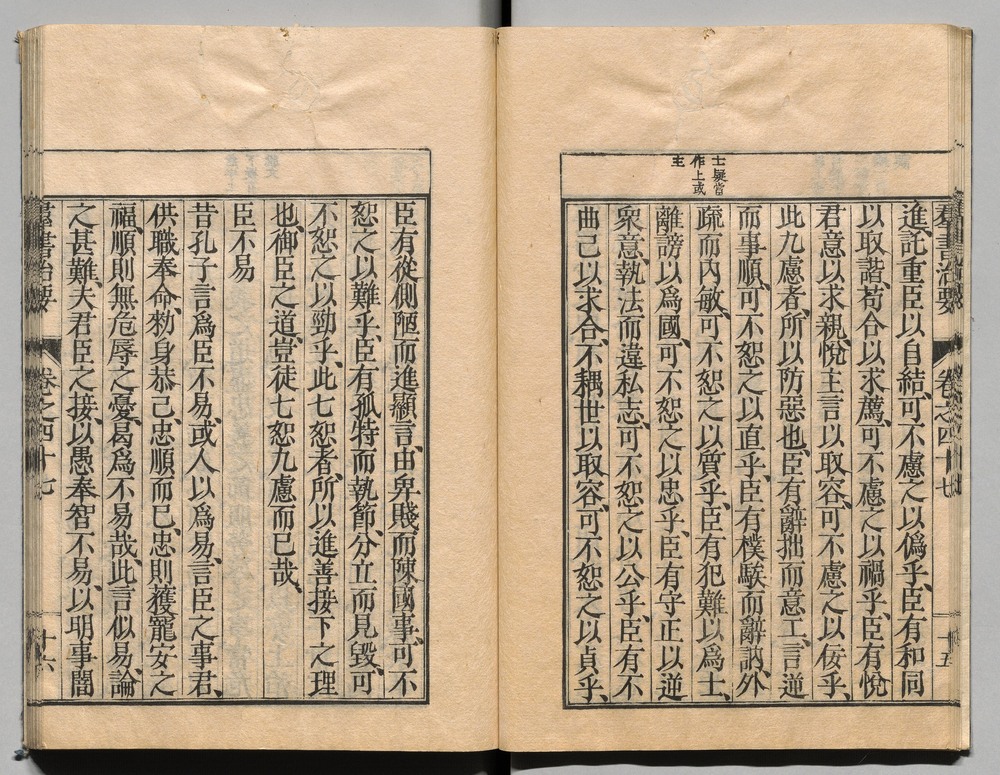 羣書治要 卷之四十七 十五
進、託重臣以自結、可不慮之以僞乎、臣有和同
以取諧、苟合以求薦、可不慮之以禍乎、臣有悅
君意以求親、悅主言以取容、可不慮之以佞乎、
此九慮者、所以防惡也、臣有辭拙而意工、言逆
而事順、可不恕之以直乎、臣有樸騃而辭訥、外
疏而內敏、可不恕之以質乎、臣有犯難以爲士、
離謗以爲國、可不恕之以忠乎、臣有守正以逆
衆意、執法而違私志、可不恕之以公乎、臣有不
曲己以求合、不耦世以取容、可不恕之以貞乎、
士疑當
作上或
主
臣有從側陋而進顯言、由卑賤而陳國事、可不
恕之以難乎、臣有孤特而執節、分立而見毀、可
不恕之以勁乎、此七恕者、所以進善接下之理
也、御臣之道、豈徒七恕九慮而已哉、
臣不易
昔孔子言爲臣不易、或人以爲易、言臣之事君、
供職奉命、勑身恭己、忠順而已、忠則獲寵安之
福、順則無危辱之憂、曷爲不易哉、此言似易、論
之甚難、夫君臣之接、以愚奉智不易、以明事闇
羣書治要 卷之四十七 十六